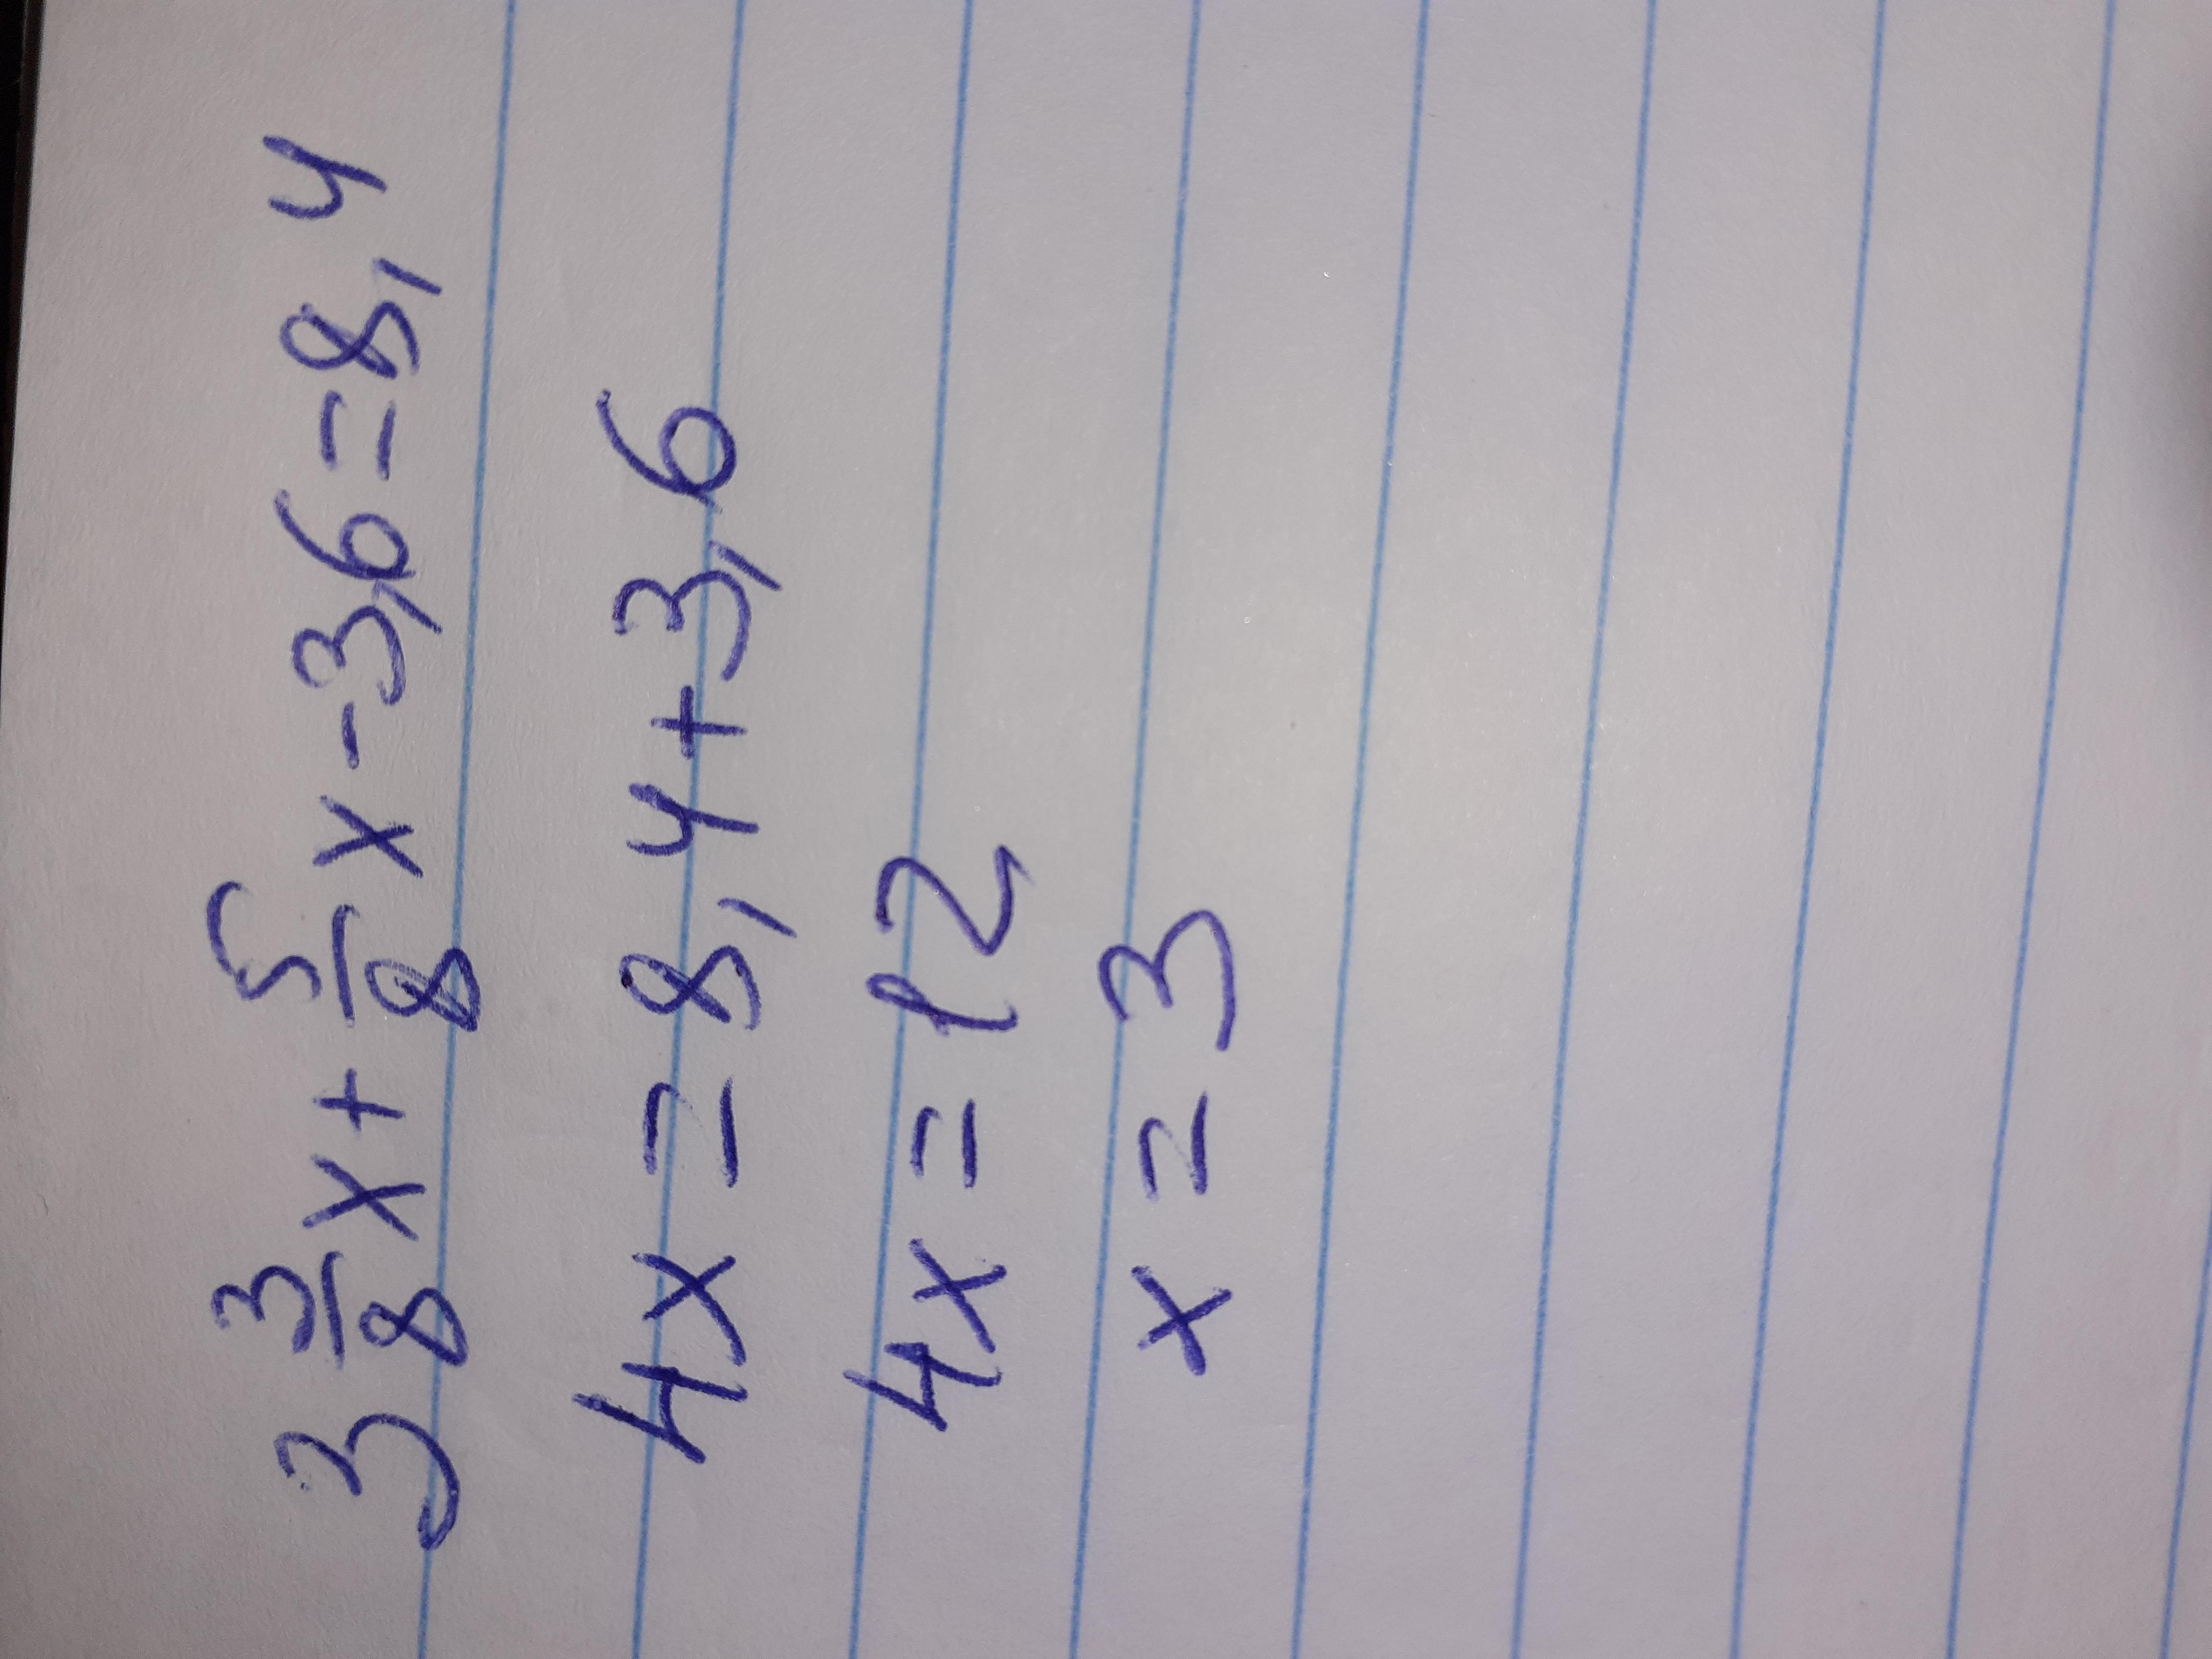 3 3/8 x + 5/8 x - 3,6 = 8,4
4x = 8,4 + 3,6
4x = 12
x = 3